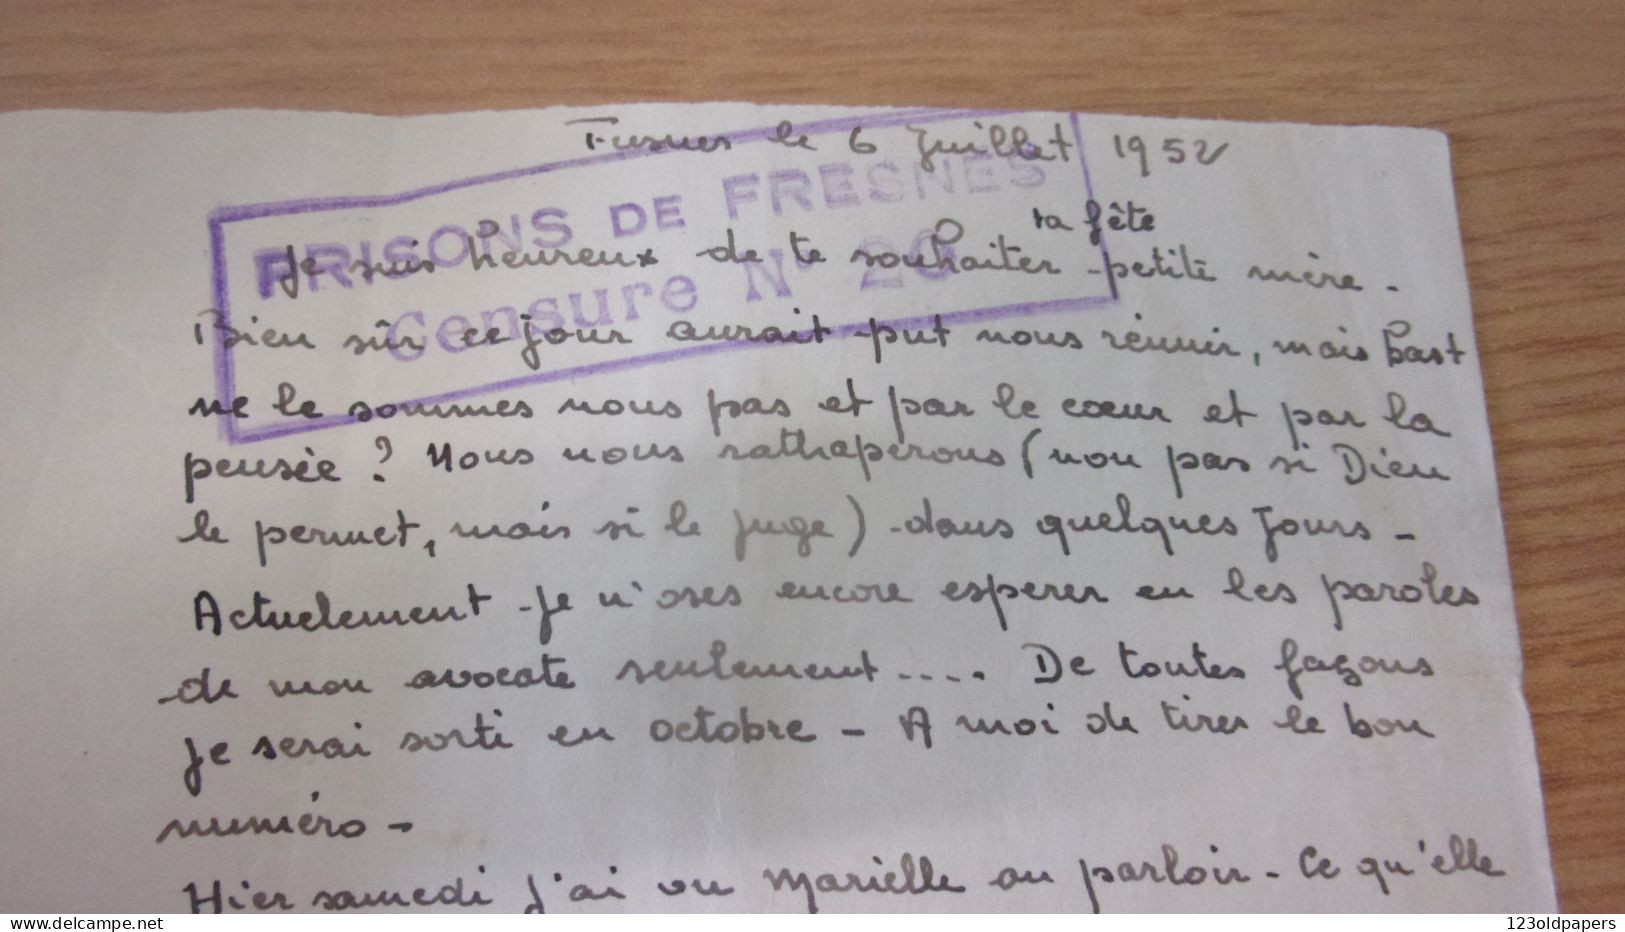 Fresnes le 6 Juillet 1952
PRISONS DE FRESNES
Censure N° 26
ta fête
Je suis heureux de te souhaiter petite mère.
Bien sûr ce jour aurait put nous réunir, mais bast
ne le sommes nous pas et par le cœur et par la
pensée ? Nous nous rattraperons (non pas si Dieu
le permet, mais si le juge) dans quelques jours -
Actuelement je n'oses encore esperer en les paroles
de mon avocate seulement .... De toutes façons
je serai sorti en octobre - A moi de tirer le bon
numéro -
Hier samedi j'ai vu Marielle au parloir - Ce qu'elle
www.delcampe.net
123oldpapers